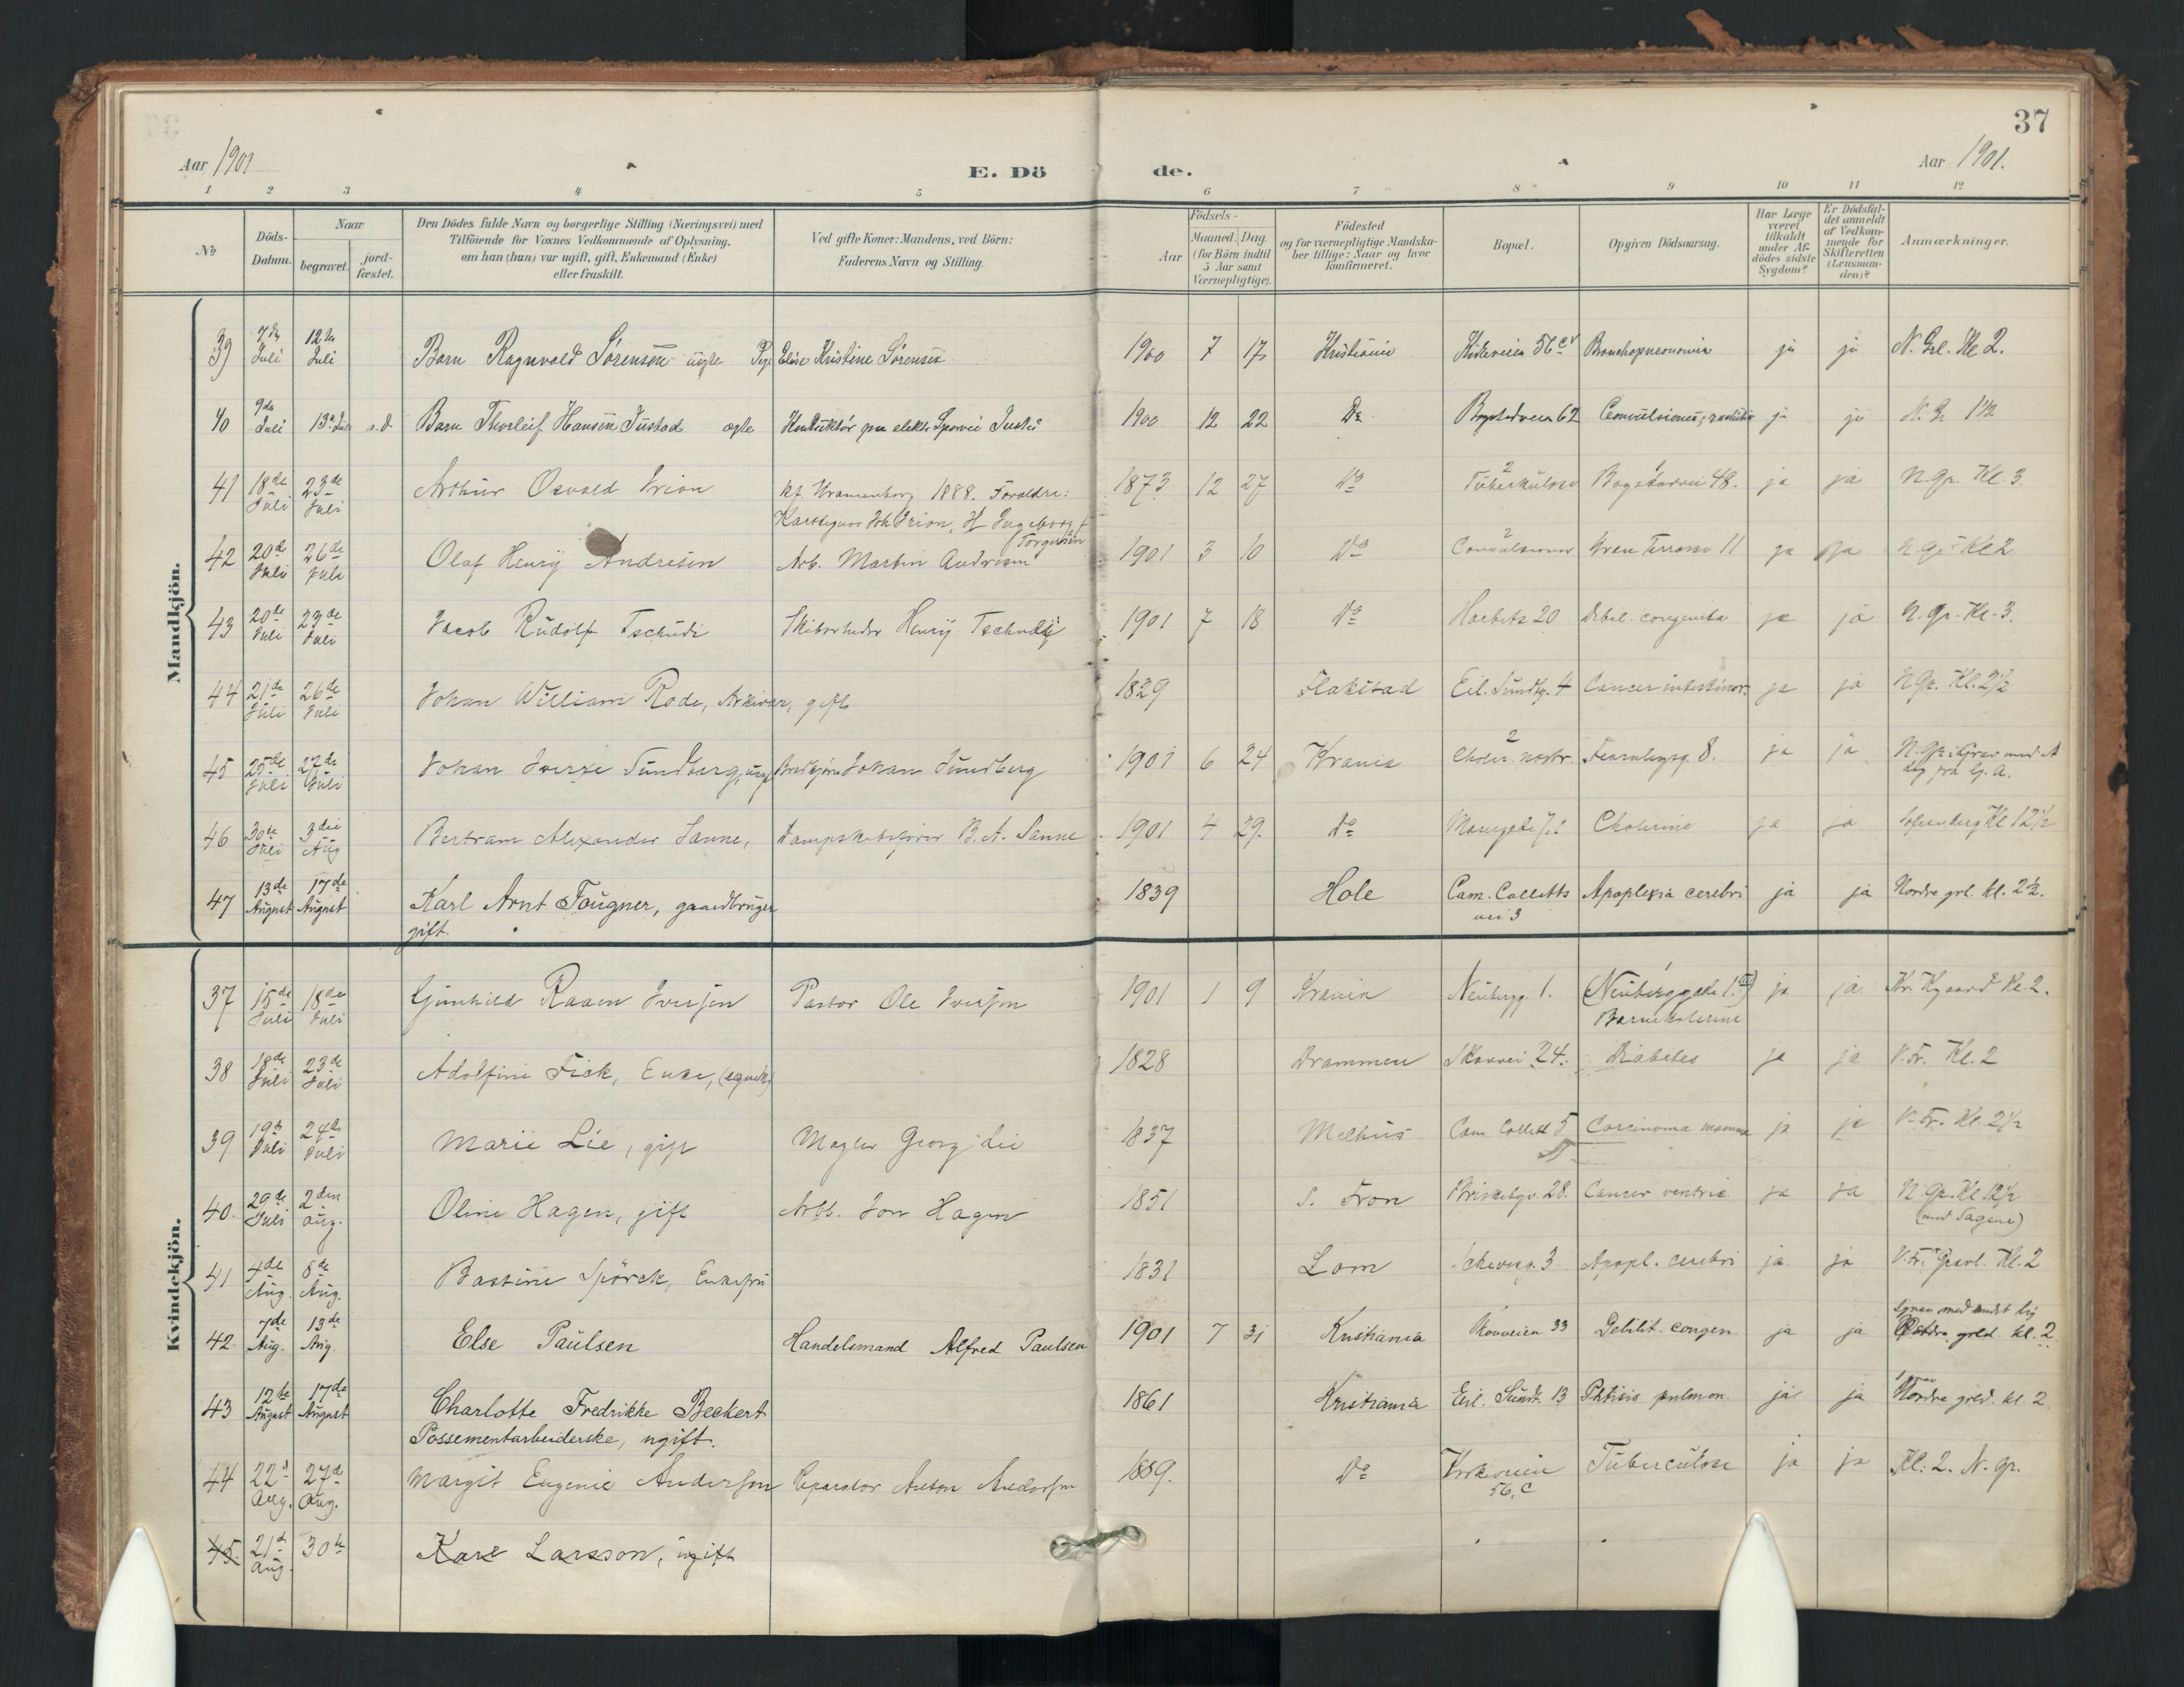 37
Aar 1901
E. Dö de.
Aar 1901.
1 2 3 4 5 6 7 8 9 10 11 12
№
Döds-Datum.
Naar
begravet.
jord-fæstet.
Den Dödes fulde Navn og borgerlige Stilling (Næringsvei) med
Tilföiende for Voxnes Vedkommende af Oplysning.
om han (hun) var ugift, gift, Enkemand (Enke)
eller fraskilt.
Ved gifte Koner: Mandens, ved Börn:
Faderens Navn og Stilling.
Födsels-
Aar
Maaned. Dag.
(for Börn indtil
5 Aar samt
Værnepligtige).
Födested
og for værnepligtige Mandska-
ber tillige: Naar og hvor
konfirmeret.
Bopæl.
Opgiven Dödsaarsag.
Har Læge
været
tilkaldt
under Af-
dödes sidste
Sygdom?
Er Dödsfal-
det anmeldt
af Vedkom-
mende for
Skifteretten
(Lensman-
den)?
Anmærkninger.
Mandkjön.
39 7de Juli 12te Juli Barn Ragnvald Sörensen uægte Pige Elise Kristine Sörensen 1900 7 17 Kristiania Kirkeveien 56 c Bronchopneumonia ja ja N. Grl. Kl 2.
40 9de Juli 13de Juli s.d. Barn Thorleif Hansen Justad ægte Konduktör paa elektr Sporvei 1900 12 22 Do Bogstadveien 62 Convulsiones; ja ja N. Gr 1½
41 18de Juli 23de Juli Arthur Osvald Irion kf. Uranienborg 1888. Forældre: 1873 12 27 Do 2 Tuberkulose 1 Bogstadvei 48. ja ja N. Gr. Kl. 3.
Joh Irion, Ingeborg
Torgersen
42 20de Juli 26de Juli Olaf Henry Andresen Arb. Martin Andresen 1901 3 10 Do 2 Convulsioner Uran Terrasse 11 ja ja N. Gr. Kl 2
43 20de Juli 23de Juli Jacob Rudolf Tschudi Skibsreder Henry Tschudy 1901 7 18 Do Harbitz 20 Debil. congenita ja ja N. Gr. Kl. 3.
44 21de Juli 26de Juli Johan William Rode, Arkivar, gift 1829 Flakstad Eil. Sundtg. 4 Cancer intestinor. ja ja N Gr. Kl. 2½
45 25de Juli 27de Juli Johan Sverre Sundberg, Johan Sundberg 1901 6 24 Krania 2 Choler. nostr. Fearnleysg. 8. ja ja N. Gr. i Grav med et
Lig fra
46 30te Juli 3die Aug Bertram Alexander Sanne, Dampskibsförer B. A. Sanne 1901 4 29. Do Cholerine ja ja Sofienberg Kl 12½
47 13de August 17de August Karl Arnt Fougner, gaardbruger 1839 Hole Cam. Colletts Apoplexia cerebri ja ja Nordre grl. kl. 2½.
gift.
vei 3
Kvindekjön.
37 15de Juli 18de Juli Gunhild Raaen Iversen Pastor Ole Iversen 1901 1 9 Krania Neubergg. 1. (Neuberggate 1.) ja ja Kl. 2.
Barnekolerine
38 18de Juli 23de Juli Adolfine Fick, Enke, 1828 Drammen Skovvei 24. Diabetes ja ja V. Fr. Kl. 2
39 19de Juli 24de Juli Marie Lie, gift Mægler Georg Lie 1837 Melhus Cam Collett 5 Carcinoma mamma ja ja V. Fr. Kl. 2½
40. 29de Juli 2den aug. Oline Hagen, gift Arb. Jon Hagen 1851 S. Fron Briskebyv. 28. Cancer ventric ja ja N. Gr. Kl 12½
(med Sagene)
41 4de Aug. 8de Aug. Bastine Spörck, Enkefru 1831 Lom 3 Apopl. cerebri ja ja V. Fr. Gravl. Kl. 2
42 7de Aug. 13de Aug. Else Paulsen Handelsmand Alfred Paulsen 1901 7 31 Kristiania Skovveien 33 Debilit. congen. ja ja i grav med andet lig
Østre grld. kl. 2
43 12te August 17de August Charlotte Fredrikke Beckert 1861 Kristiania Eil. Sundt. 13 Phtisis pulmon. ja ja Nordre grld. kl. 2
Possementarbeiderske, ugift.
44 22d Aug. 27de Aug. Margit Eugenie Andersen Reparatör Anton Andersen 1889. Do Kirkeveien Tuberculose ja ja Kl. 2. N. Gr.
56. C
45 21de Aug. 30te Kare Larsson, ugift